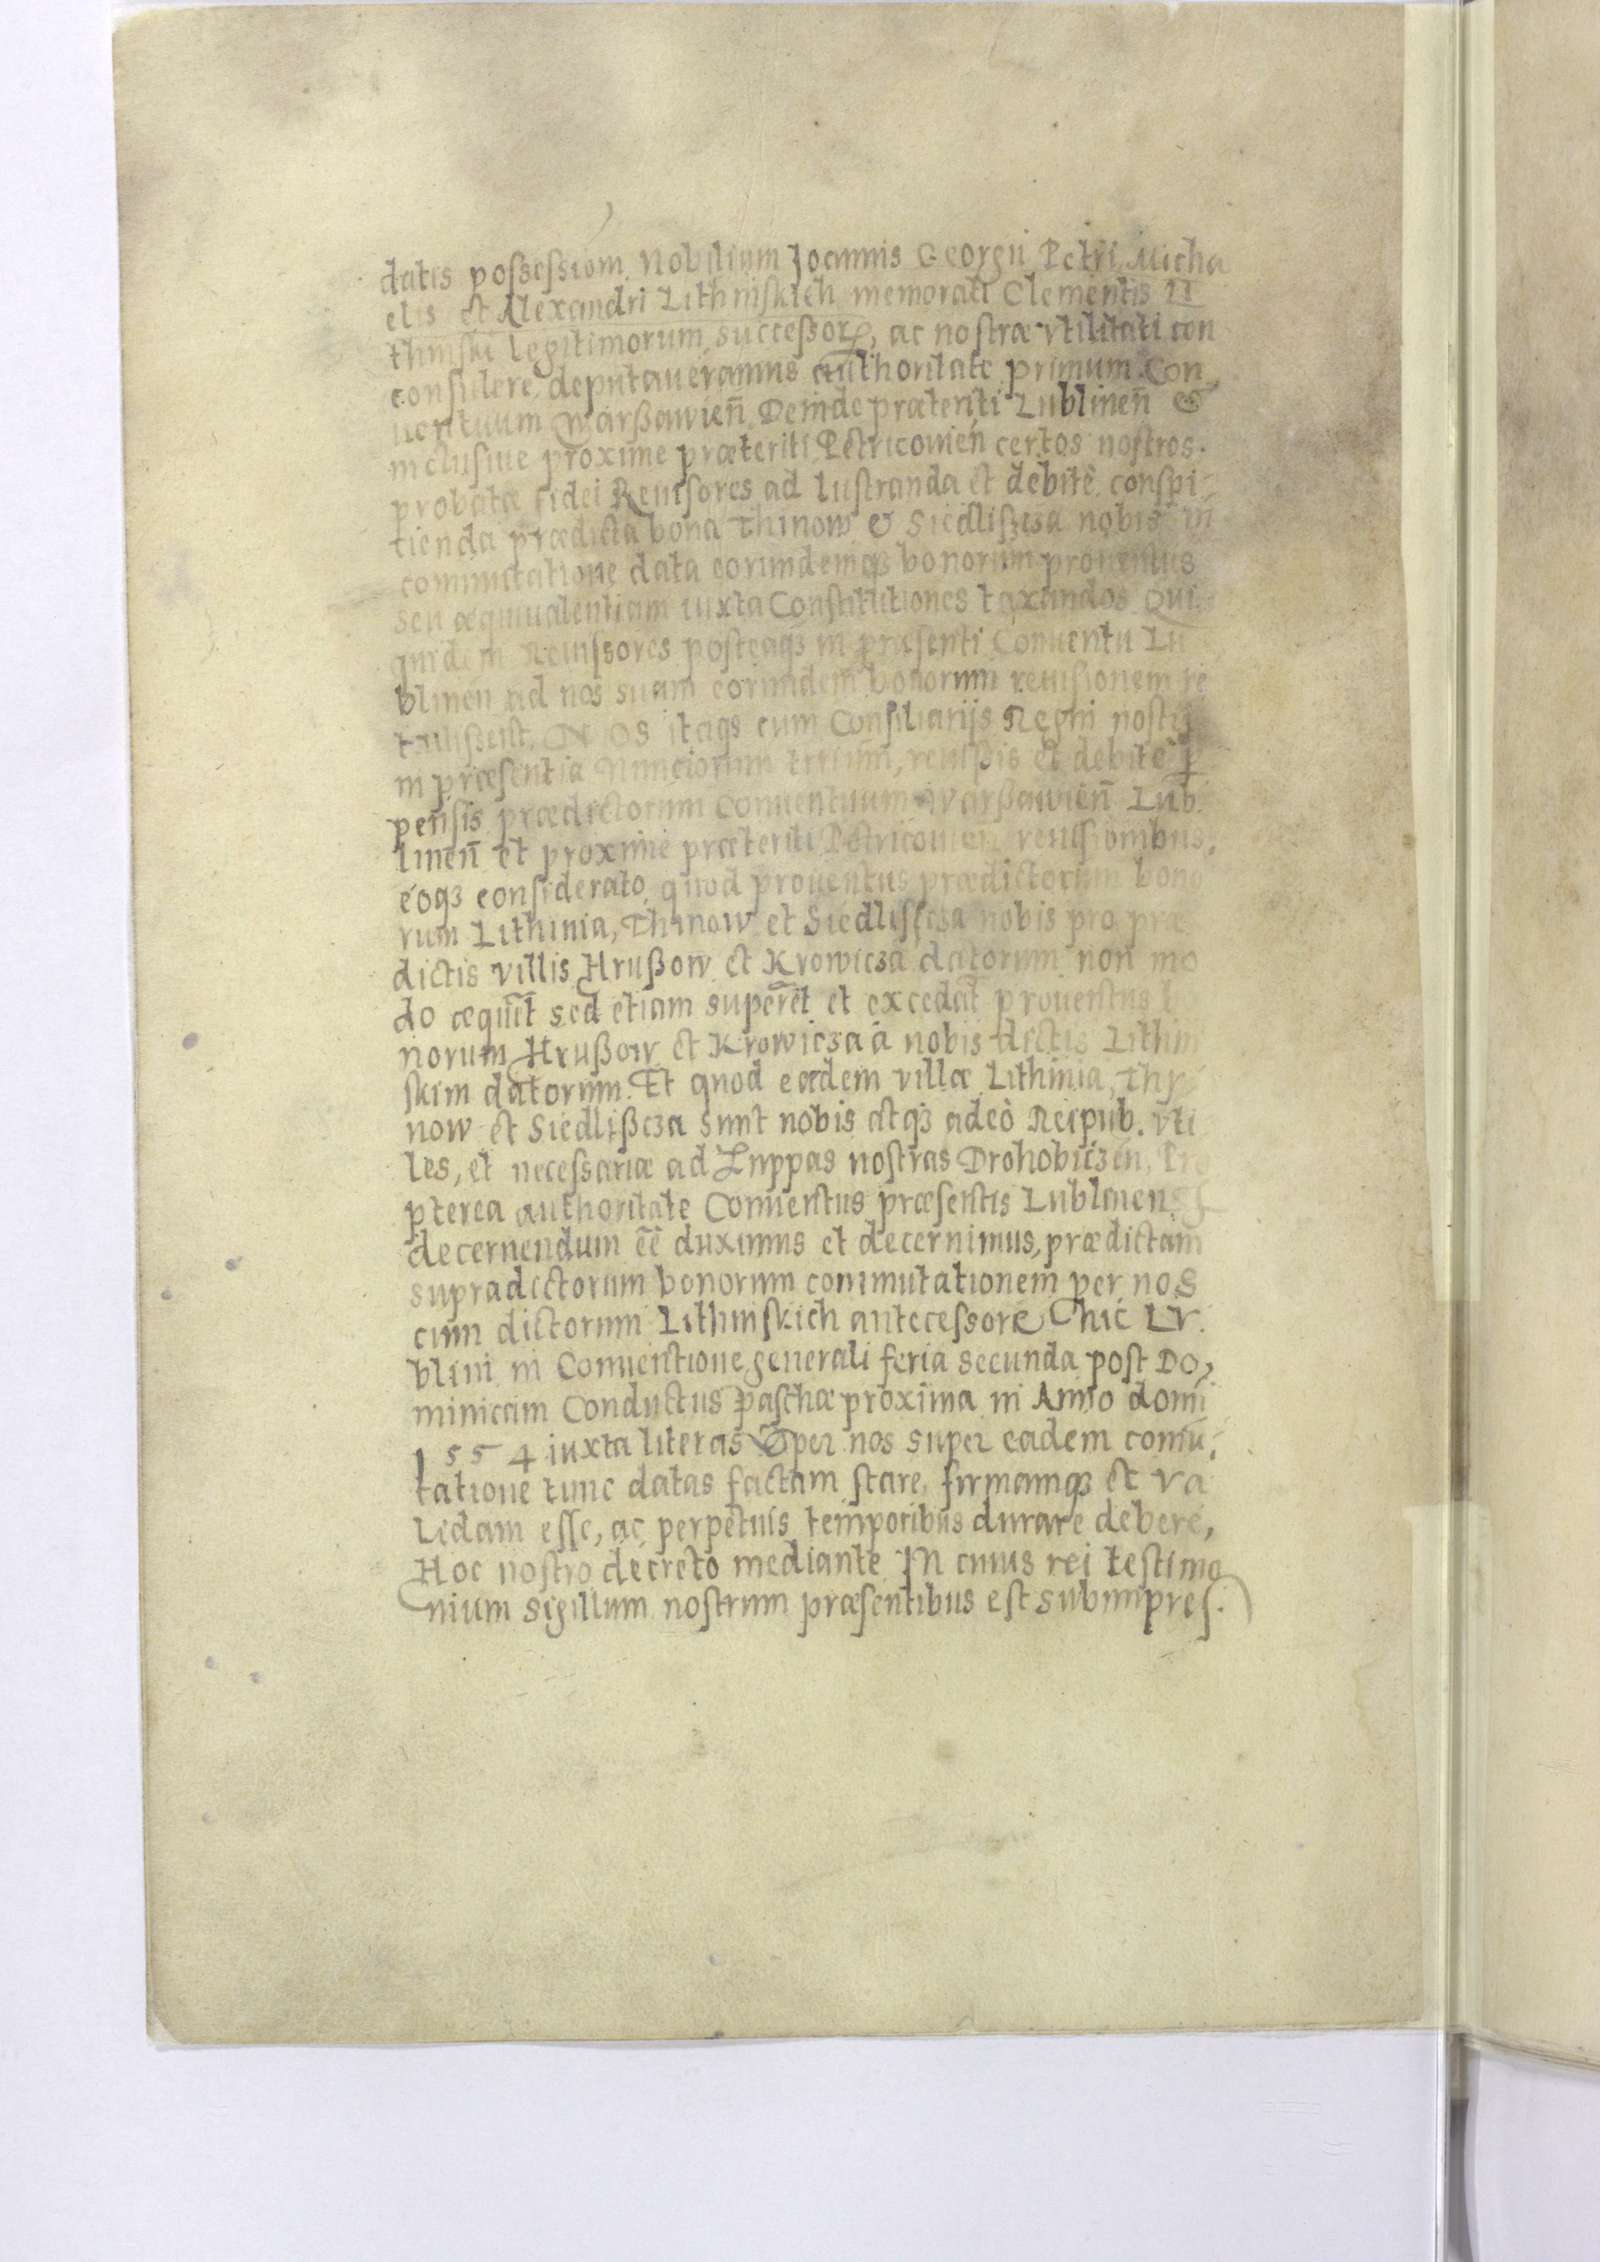 datis possessioni Nobilium Joannis Georgii Petri Micha
elis et Alexandri Lithinskich memorati Clementis Li
thinski legitimorum successorꝝ, ac nostræ vtilitati con
consulere, deputaueramus authoritate primum Con,
uentuum Warßawień Deinde præteriti Lublineñ &
inclusiue proxime præteriti Petricouień certos nostros.
probatæ fidei Reuisores ad lustranda et debitè conspi,
tienda prædicta bona Thinow & Siedlißcza nobis in
commutatione data eorundemqꝫ bonorum prouentus
seu æquiualentiam iuxta Constitutiones taxandos Qui
quidem Reuissores posteaqꝫ in præsenti Conuentu Lu
blineñ ad nos suam eorundem bonorum reuisionem re
tulissent, NOS itaqꝫ cum Consiliarijs Regni nostri
in præsentia Nunciorum terrarum, reuißis et debite p
pensis prædictorum Conuentuum Warßawień Lub.
lineñ et proxime præteriti Petricouień reuisionibus,
eoqꝫ considerato quod prouentus prædictorum bono
rum Lithinia, Thinow et Siedlißcza nobis pro præ
dictis villis Hrußow et Krowicza datorum non mo
do æquēt sed etiam superēt et excedāt prouentus
norum Hrußow et Krowicza à nobis dictis Lithin
skim datorum. Et quod eædem villæ Lithinia, Thy
now et Siedlißcza sunt nobis atqꝫ adeò Reipub. vti
les, et necessariæ ad Zuppas nostras Drohobiczeń, Pro
pterea authoritate Conuentus præsentis Lublinens
decernendum eē duximus et decernimus, prædictam
supradictorum bonorum commutationem per nos
cum dictorum Lithinskich antecessore hic Lv.
blini in Conuentione generali feria secunda post Do,
minicam Conductus Paschæ proxima in Anno domi
1554 iuxta literas per nos super eadem comu,
tatione tunc datas factam stare, firmamqꝫ et va
lidam esse, ac perpetuis temporibus durare debere,
Hoc nostro decreto mediante In cuius rei testimo
nium Sigillum nostrum præsentibus est subimpres.